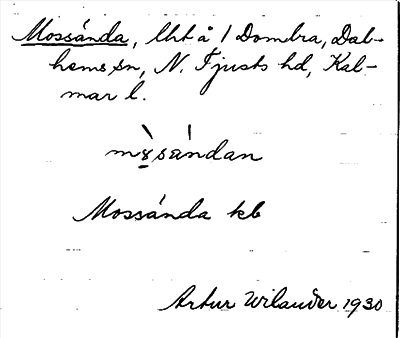 Mossånda, lht å 1 Dombra, Dal-
hems sn, N. Tjusts hd, Kal-
mar l.
Mossånda kb
Artur Wilander 1930